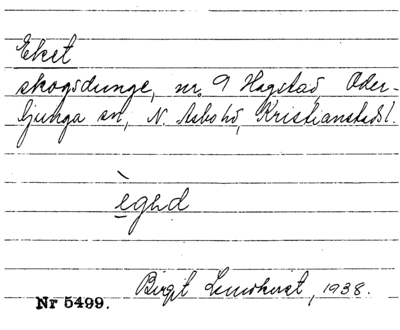 Eket
skogsdunge, nr. 9 Hagstad, Oder-
ljunga sn, N. Åsbo hd, Kristianstads l.
èghd
Birgit Lundkvist, 1938.
Nr 5499.